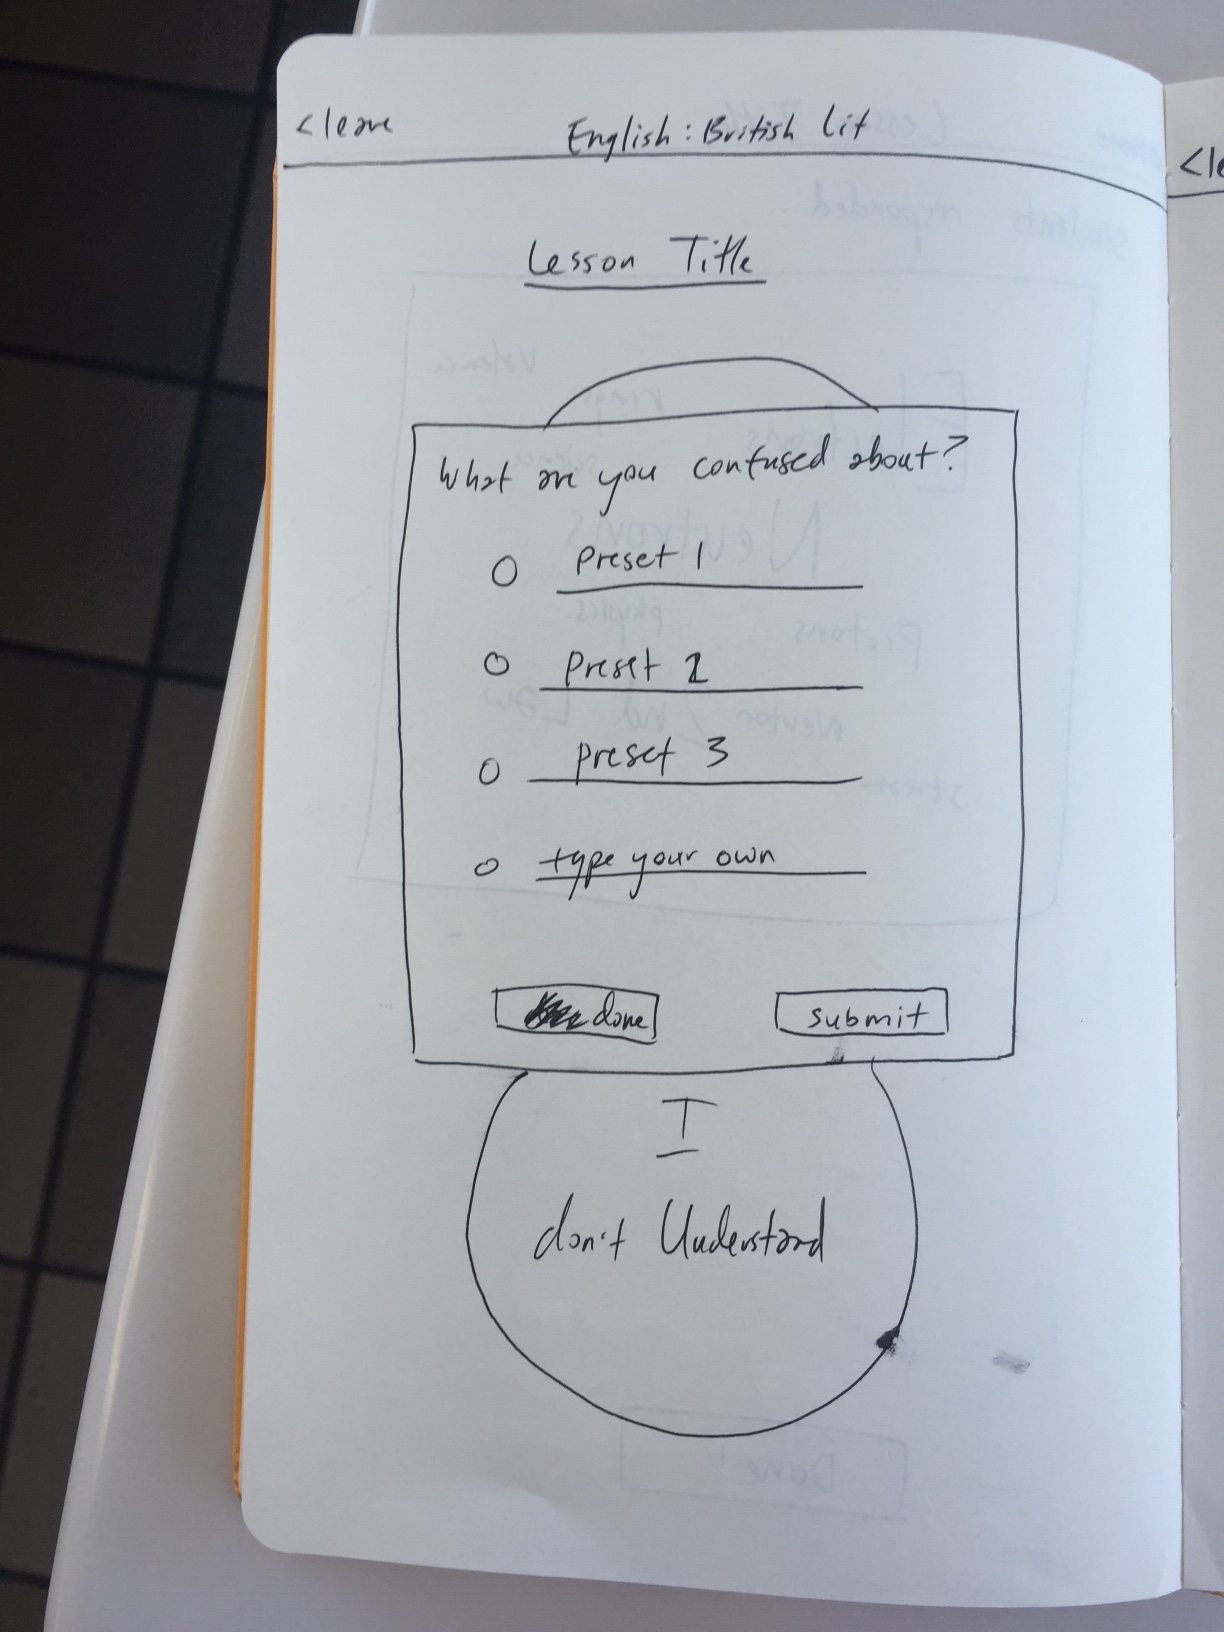 <leave English: British Lit
<le
Lesson Title
What are you confused about?
Preset 1
Preset 2
Preset 3
type your own
done submit
I
don't Understand